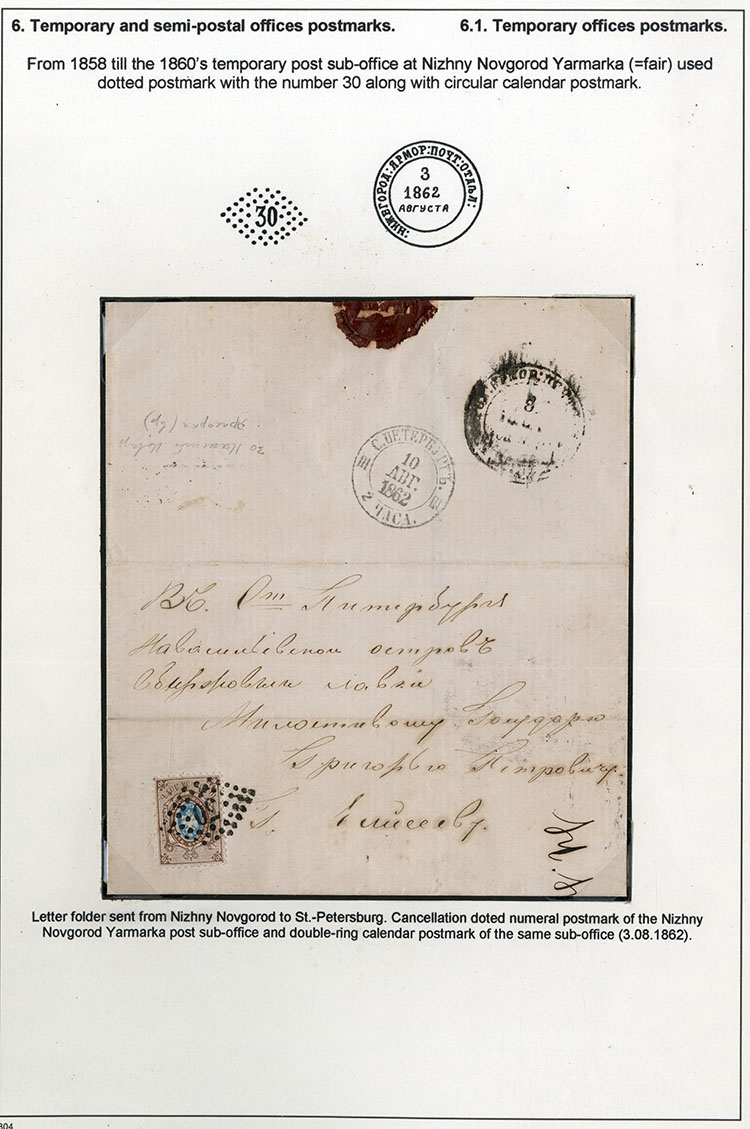 6. Temporary and semi-postal offices postmarks. 6.1. Temporary offices postmarks.
From 1858 till the 1860's temporary post sub-office at Nizhny Novgorod Yarmarka (=fair) used
dotted postmark with the number 30 along with circular calendar postmark.
30
:НИЖЕГОРОД:ЯРМОР:ПОЧТ:ОТДѢЛ:
3
1862
АВГУСТА
ЯРМОР:ПОЧТ
3
С.ПЕТЕРБУРГЪ.
10
АВГ.
1862
2 ЧАСА.
Ст Питербургя
Навасильевскои островъ
лавки
Милостивому Государю
Григорью Петровичу
Г. Елисееву.
Letter folder sent from Nizhny Novgorod to St.-Petersburg. Cancellation doted numeral postmark of the Nizhny
Novgorod Yarmarka post sub-office and double-ring calendar postmark of the same sub-office (3.08.1862).
304